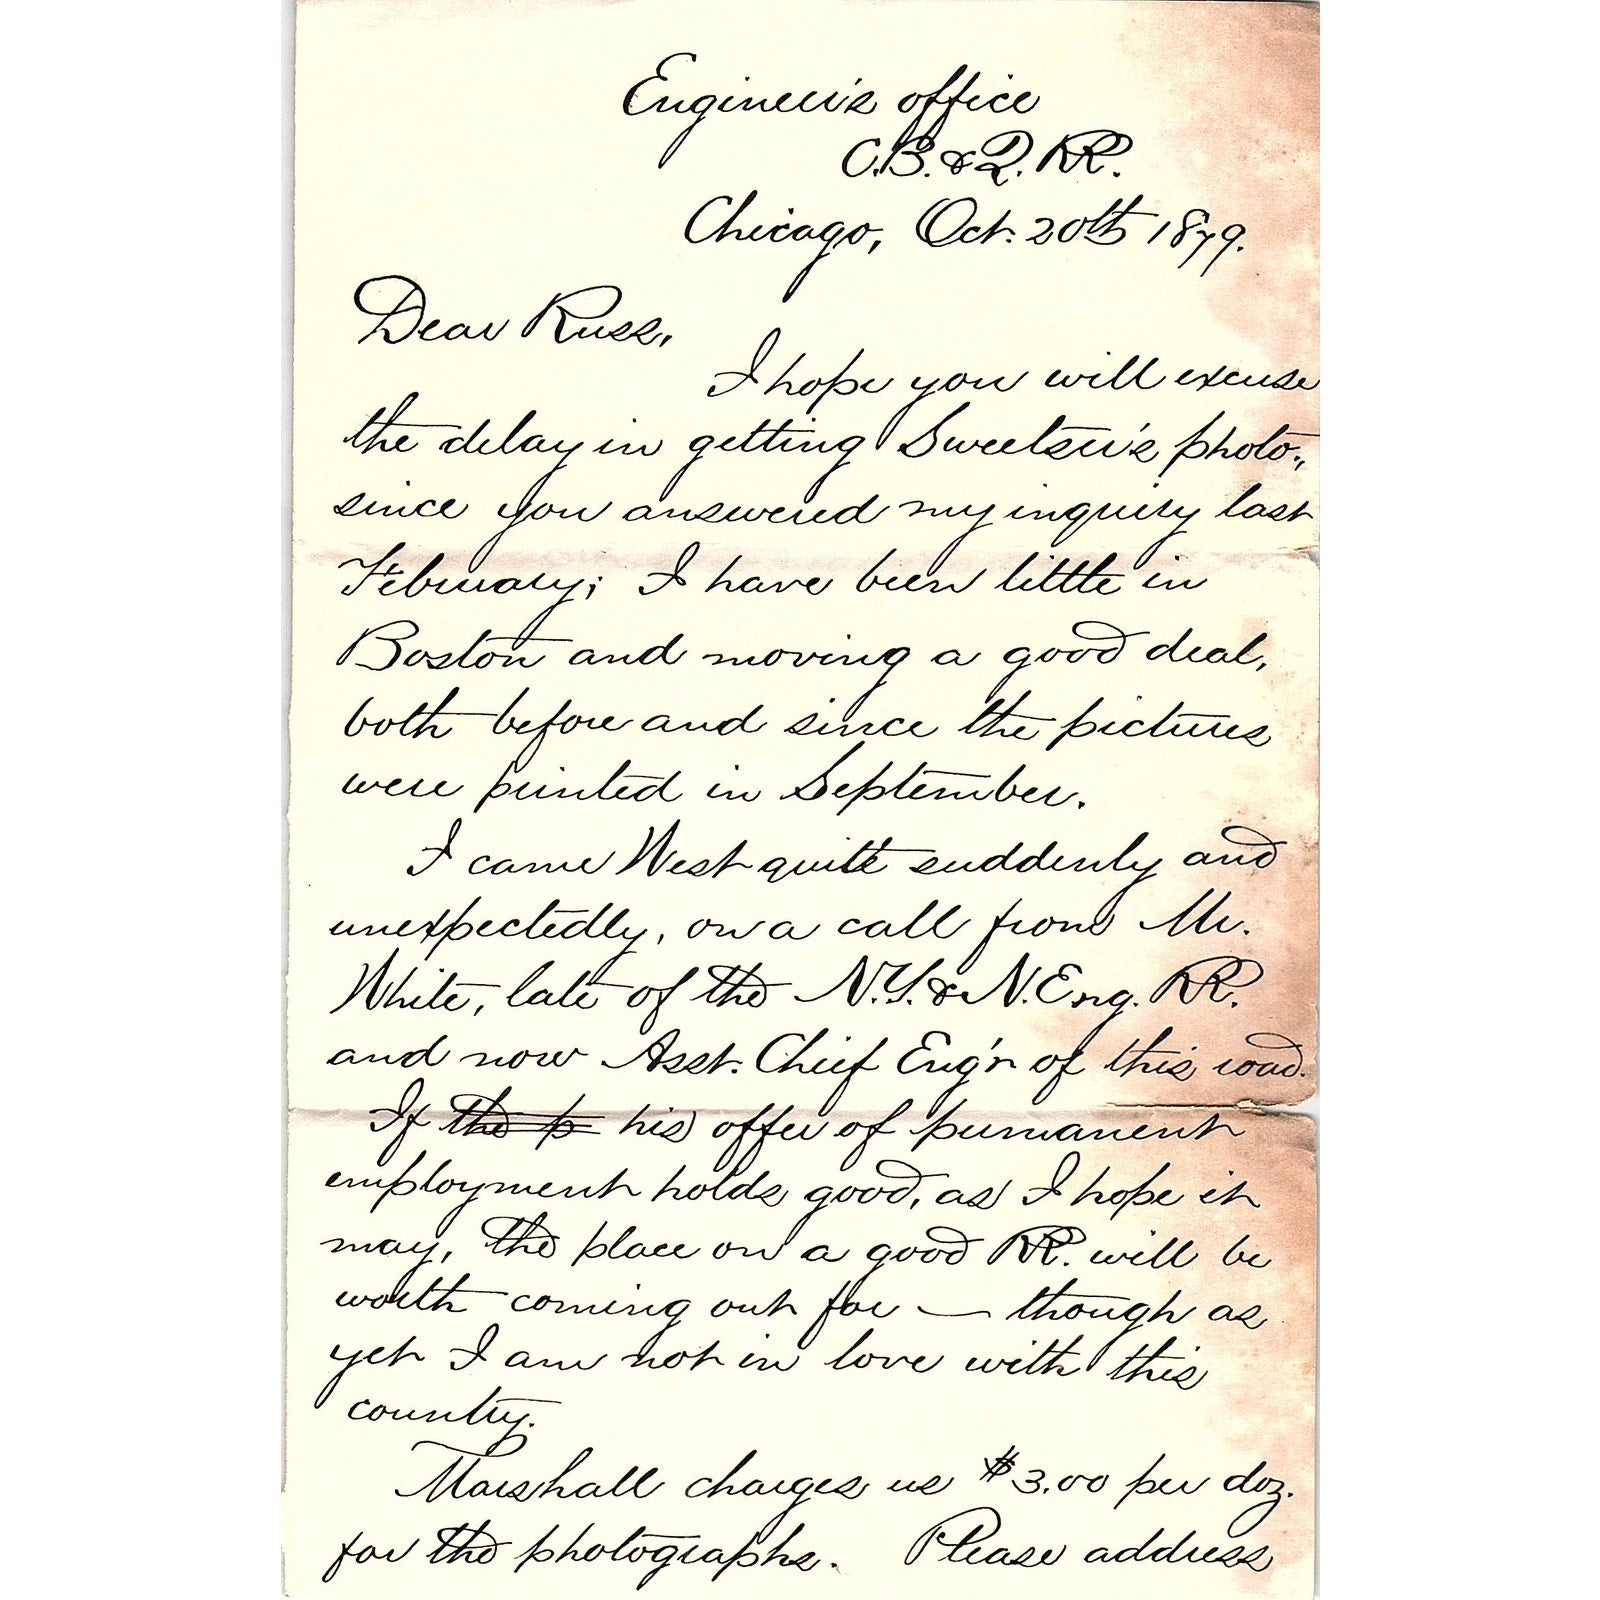 Engineer's office
C.B. & Q. RR.
Chicago, Oct. 20th 1879.
Dear Russ,
I hope you will excuse
the delay in getting Sweetser's photo.,
since you answered my inquiry last
February; I have been little in
Boston and moving a good deal,
both before and since the pictures
were printed in September.
I came West quite suddenly and
unexpectedly, on a call from Mr.
White, late of the N.Y. & N. Eng. RR.
and now Asst. Chief Eng'r of this road.
If the p his offer of permanent
employment holds good, as I hope it
may, the place on a good RR. will be
worth coming out for — though as
yet I am not in love with this
country.
Marshall charges us $3.00 per doz.
for the photographs. Please address